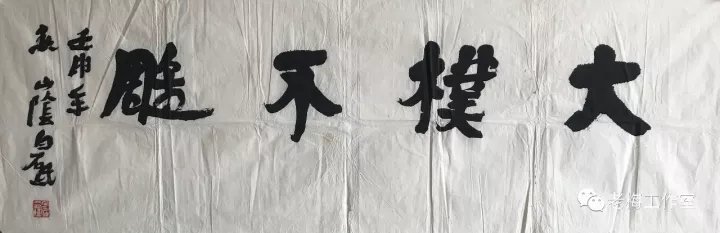 大樸不雕
壬申年
山陰白石
老海工作室